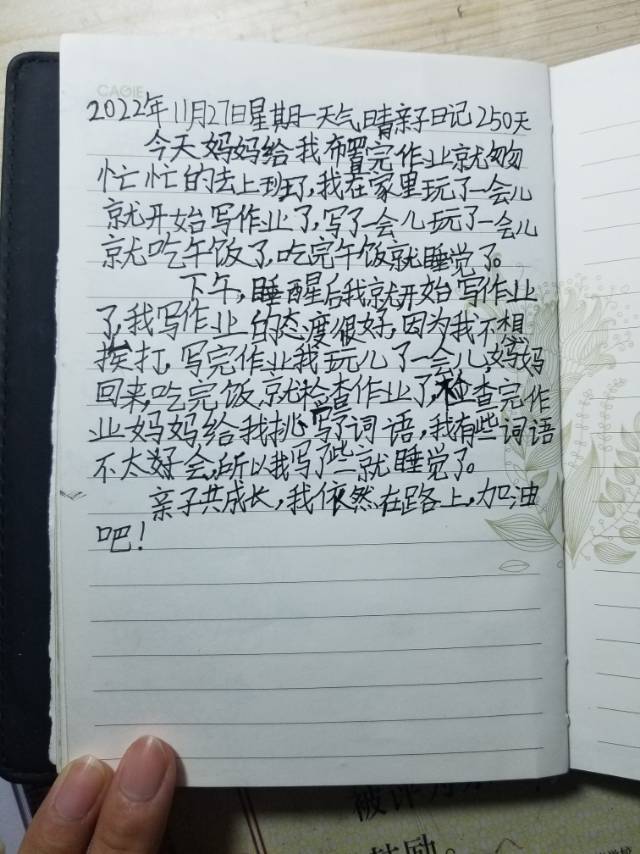 CAGIE
2022年11月27日星期一天气晴亲子日记250天
今天妈妈给我布置完作业就匆匆
忙忙的去上班了,我在家里玩了一会儿
就开始写作业了,写了一会儿玩了一会儿
就吃午饭了,吃完午饭就睡觉了。
下午,睡醒后我就开始写作业
了,我写作业的态度很好,因为我不想
挨打,写完作业我玩儿了一会儿,妈妈
回来,吃完饭,就检查作业了,检查完作
业妈妈给我挑写了词语,我有些词语
不太好会,所以我写了些就睡觉了。
亲子共成长,我依然在路上,加油
吧!